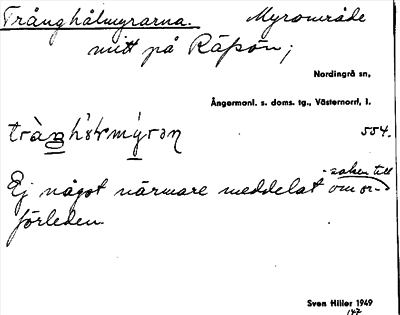 Trånghålmyrarna. Myrområde
mitt på Räpön;
Nordingrå sn,
Ångermanl. s. doms. tg., Västernorrl. l.
554.
Ej något närmare meddelat om or-
saken till
förleden
Sven Hiller 1949
147